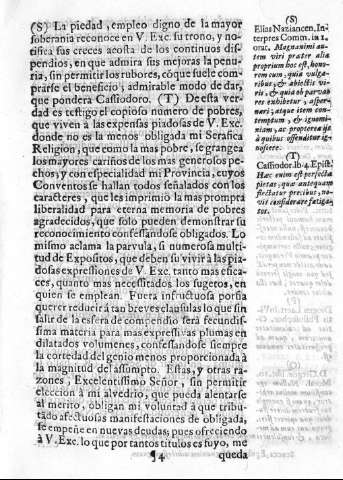 (S) La piedad, empleo digno de la mayor
soberania reconoce en V. Exc. su trono, y no-
tifica sus creces acosta de los continuos dis-
pendios, en que admira sus mejoras la penu-
ria, sin permitir los rubores, cō que suele com-
prarse el beneficio; admirable modo de dar,
que pondera Cassiodoro. (T) De esta ver-
dad es testigo el copioso numero de pobres,
que viven à las expensas piadosas de V. Exc.
donde no es la menos obligada mi Serafica
Religion, que como la mas pobre, se grangea
los mayores cariños de los mas generosos pe-
chos, y con especialidad mi Provincia, cuyos
Conventos se hallan todos señalados con los
caracteres, que les imprimiò la mas prompta
liberalidad para eterna memoria de pobres
agradecidos, que solo pueden demonstrar su
reconocimiento confessandose obligados. Lo
mismo aclama la parvula, si numerosa multi-
tud de Expositos, que deben su vivir à las pia-
dosas expressiones de V. Exc. tanto mas efica-
ces, quanto mas necessitados los sugetos, en
quien se emplean. Fuera infructuosa porfia
querer reducir à tan breves clausulas lo que sin
salir de la esfera de compendio serà fecundis-
sima materia para mas expressivas plumas en
dilatados volumenes, confessandose siempre
la cortedad del genio menos proporcionada à
la magnitud del assumpto. Estas, y otras ra-
zones, Excelentissimo Señor, sin permitir
eleccion à mi alvedrio, que pueda alentarse
al merito, obligan mi voluntad à que tribu-
tado afectuosas manifestaciones de obligada,
se empeñe en nuevas deudas; pues ofreciendo
à V. Exc. lo que por tantos titulos es suyo, me
¶4 queda
(S)
Elias Nazianzen. In-
terpres Comm. in 1.
orat. Magnanimi au-
tem viri prater alia
proprium hoc est, hono-
rem cum, quia vulga-
ribus, & abiectis vi-
ris, & quia ob parvas
res exhibetur, asper-
nari, atque item con-
temptum, & ignomi-
niam, ac propterea ijs
à quibus offenditur ig-
noscere.
(T)
Cassiodor. lib. 4. Epist.
Hac enim est perfecta
pietas, qua antequam
flectatur precibus, no-
vit considerare fatiga-
tos.